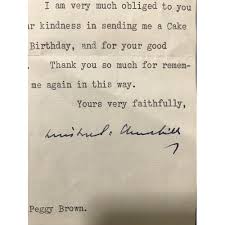 I am very much obliged to you
ur kindness in sending me a Cake
Birthday, and for your good
Thank you so much for remem-
me again in this way.
Yours very faithfully,
Winston S. Churchill
Peggy Brown.